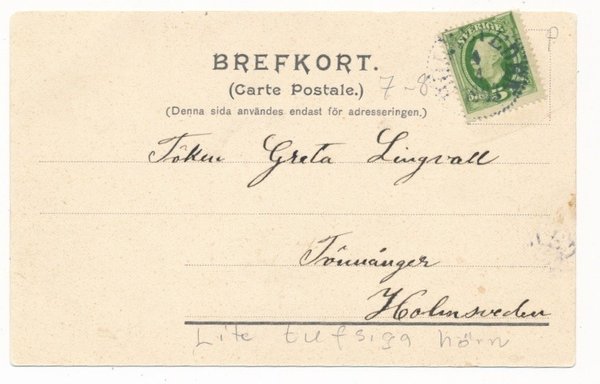 BREFKORT.
(Carte Postale.)
7-8
(Denna sida användes endast för adresseringen.)
SVERIGE
5
ÖRE
P
Töken Greta Lingvall
Tönnånger
Holmsveden
Lite tufsiga hörn